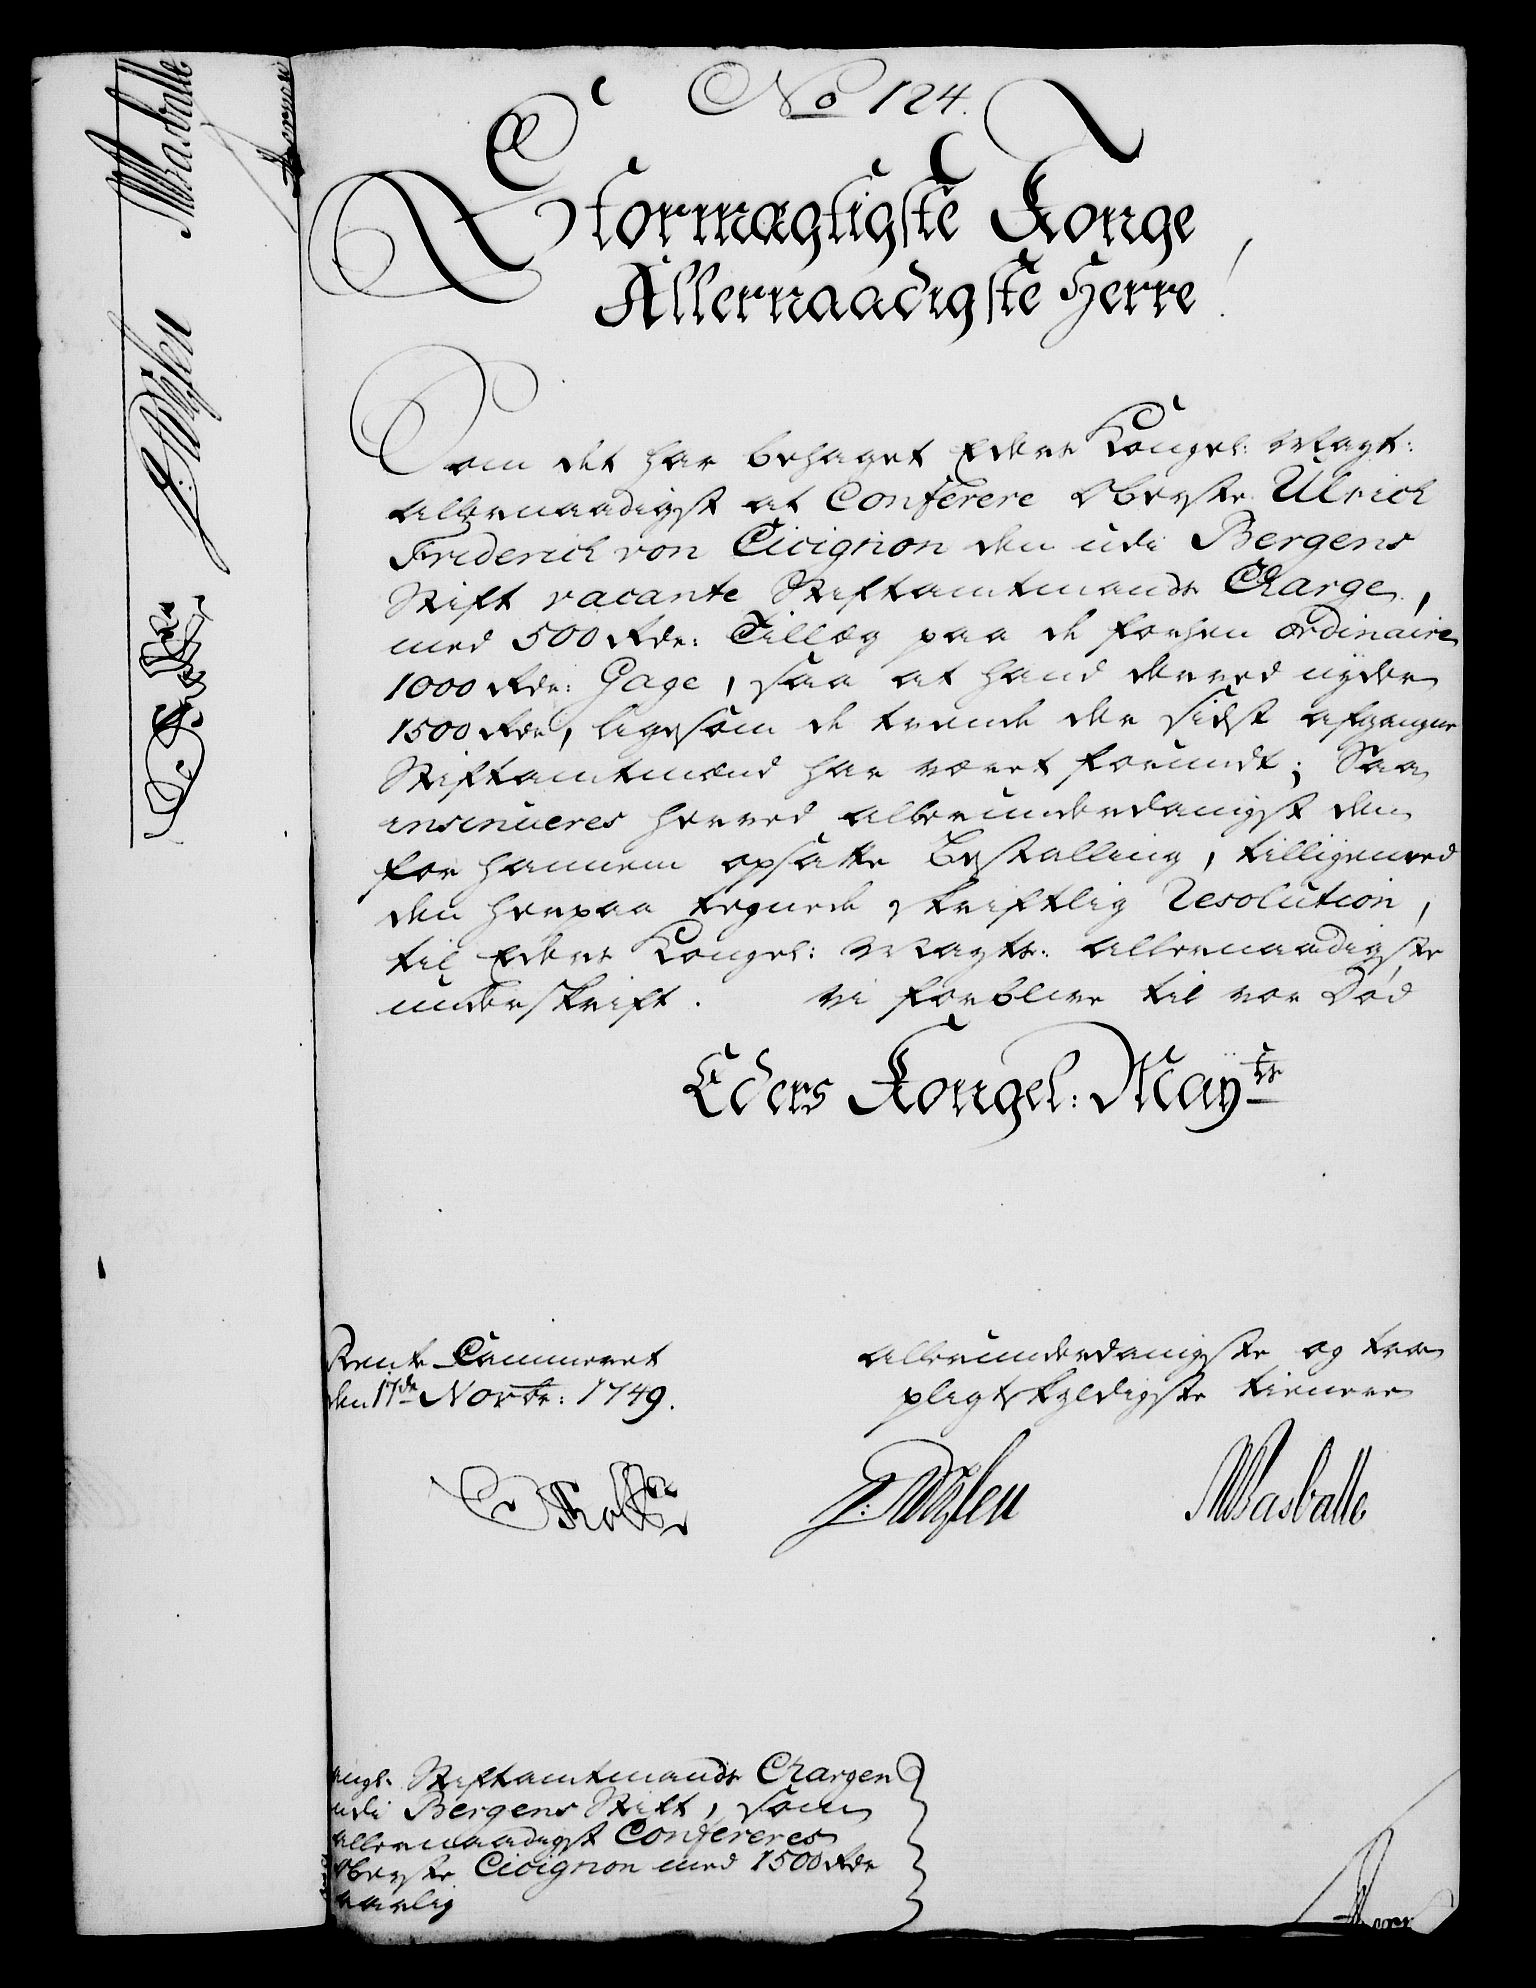 No 124.
Stormægtigste Konge
Allernaadigste Herre!
Som det har behaget Eders Kongel: Mayt:
allernaadigst at Conferere Oberste Ulrich
Friderich von Cicignon den udi Bergens
Stift vacante Stiftamtmands Charge,
med 500 Rdr: Tillæg paa de forhen ordinaire
1000 Rdr: Gage, saa at hand derved nyder
1500 Rdr, ligesom de trende der sidst afgangne
Stiftamtmænd har været forundt; Saa
insinueres herved allerunderdanigst den
for hannem opsatte Bestalling, tilligemed
den herpaa tegnede skriftlig Resolution,
til Eders Kongel: Mayts: allernaadigste
underskrift. Vi forblive til vor Død
Eders Kongel: Mayts
Rente Cammeret
den 17de Novbr: 1749.
allerunderdanigste og troe
pligtskyldigste tienere
angl. Stiftamtmands Chargen
udi Bergens Stift, som
allernaadigst Confereres
Oberste Cicignon med 1500 Rdr
aarlig